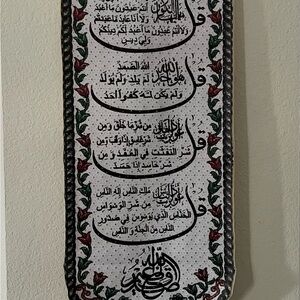 قل يا ايها الكافرون لا أعبد ما تعبدون ولا أنتم عابدون ما أعبد
ولا أنا عابد ما عبدتم
ولا أنتم عابدون ما أعبد لكم دينكم
ولي دين
قل هو الله أحد الله الصمد
لم يلد ولم يولد
ولم يكن له كفوا أحد
قل أعوذ برب الفلق من شر ما خلق ومن
شر غاسق إذا وقب ومن
شر النفثت في العقد ومن
شر حاسد إذا حسد
قل أعوذ برب الناس ملك الناس إله الناس
من شر الوسواس
الخناس الذي يوسوس في صدور
الناس من الجنة والناس
صدق الله العظيم